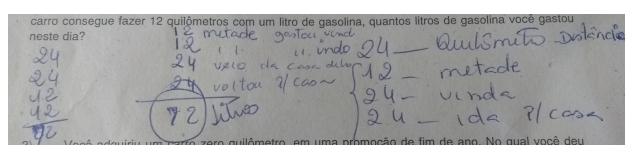 carro consegue fazer 12 quilômetros com um litro de gasolina, quantos litros de gasolina você gastou
neste dia?
12 metade gastou vind
12 " " indo
24 veio da casa
24 voltou p/ casa
72 litros
24
24
12
12
72
24 — Quilômetro Distância
12 — metade
24 — vinda
24 — ida p/ casa
Você adquiriu um carro zero quilômetro, em uma promoção de fim de ano. No qual você deu